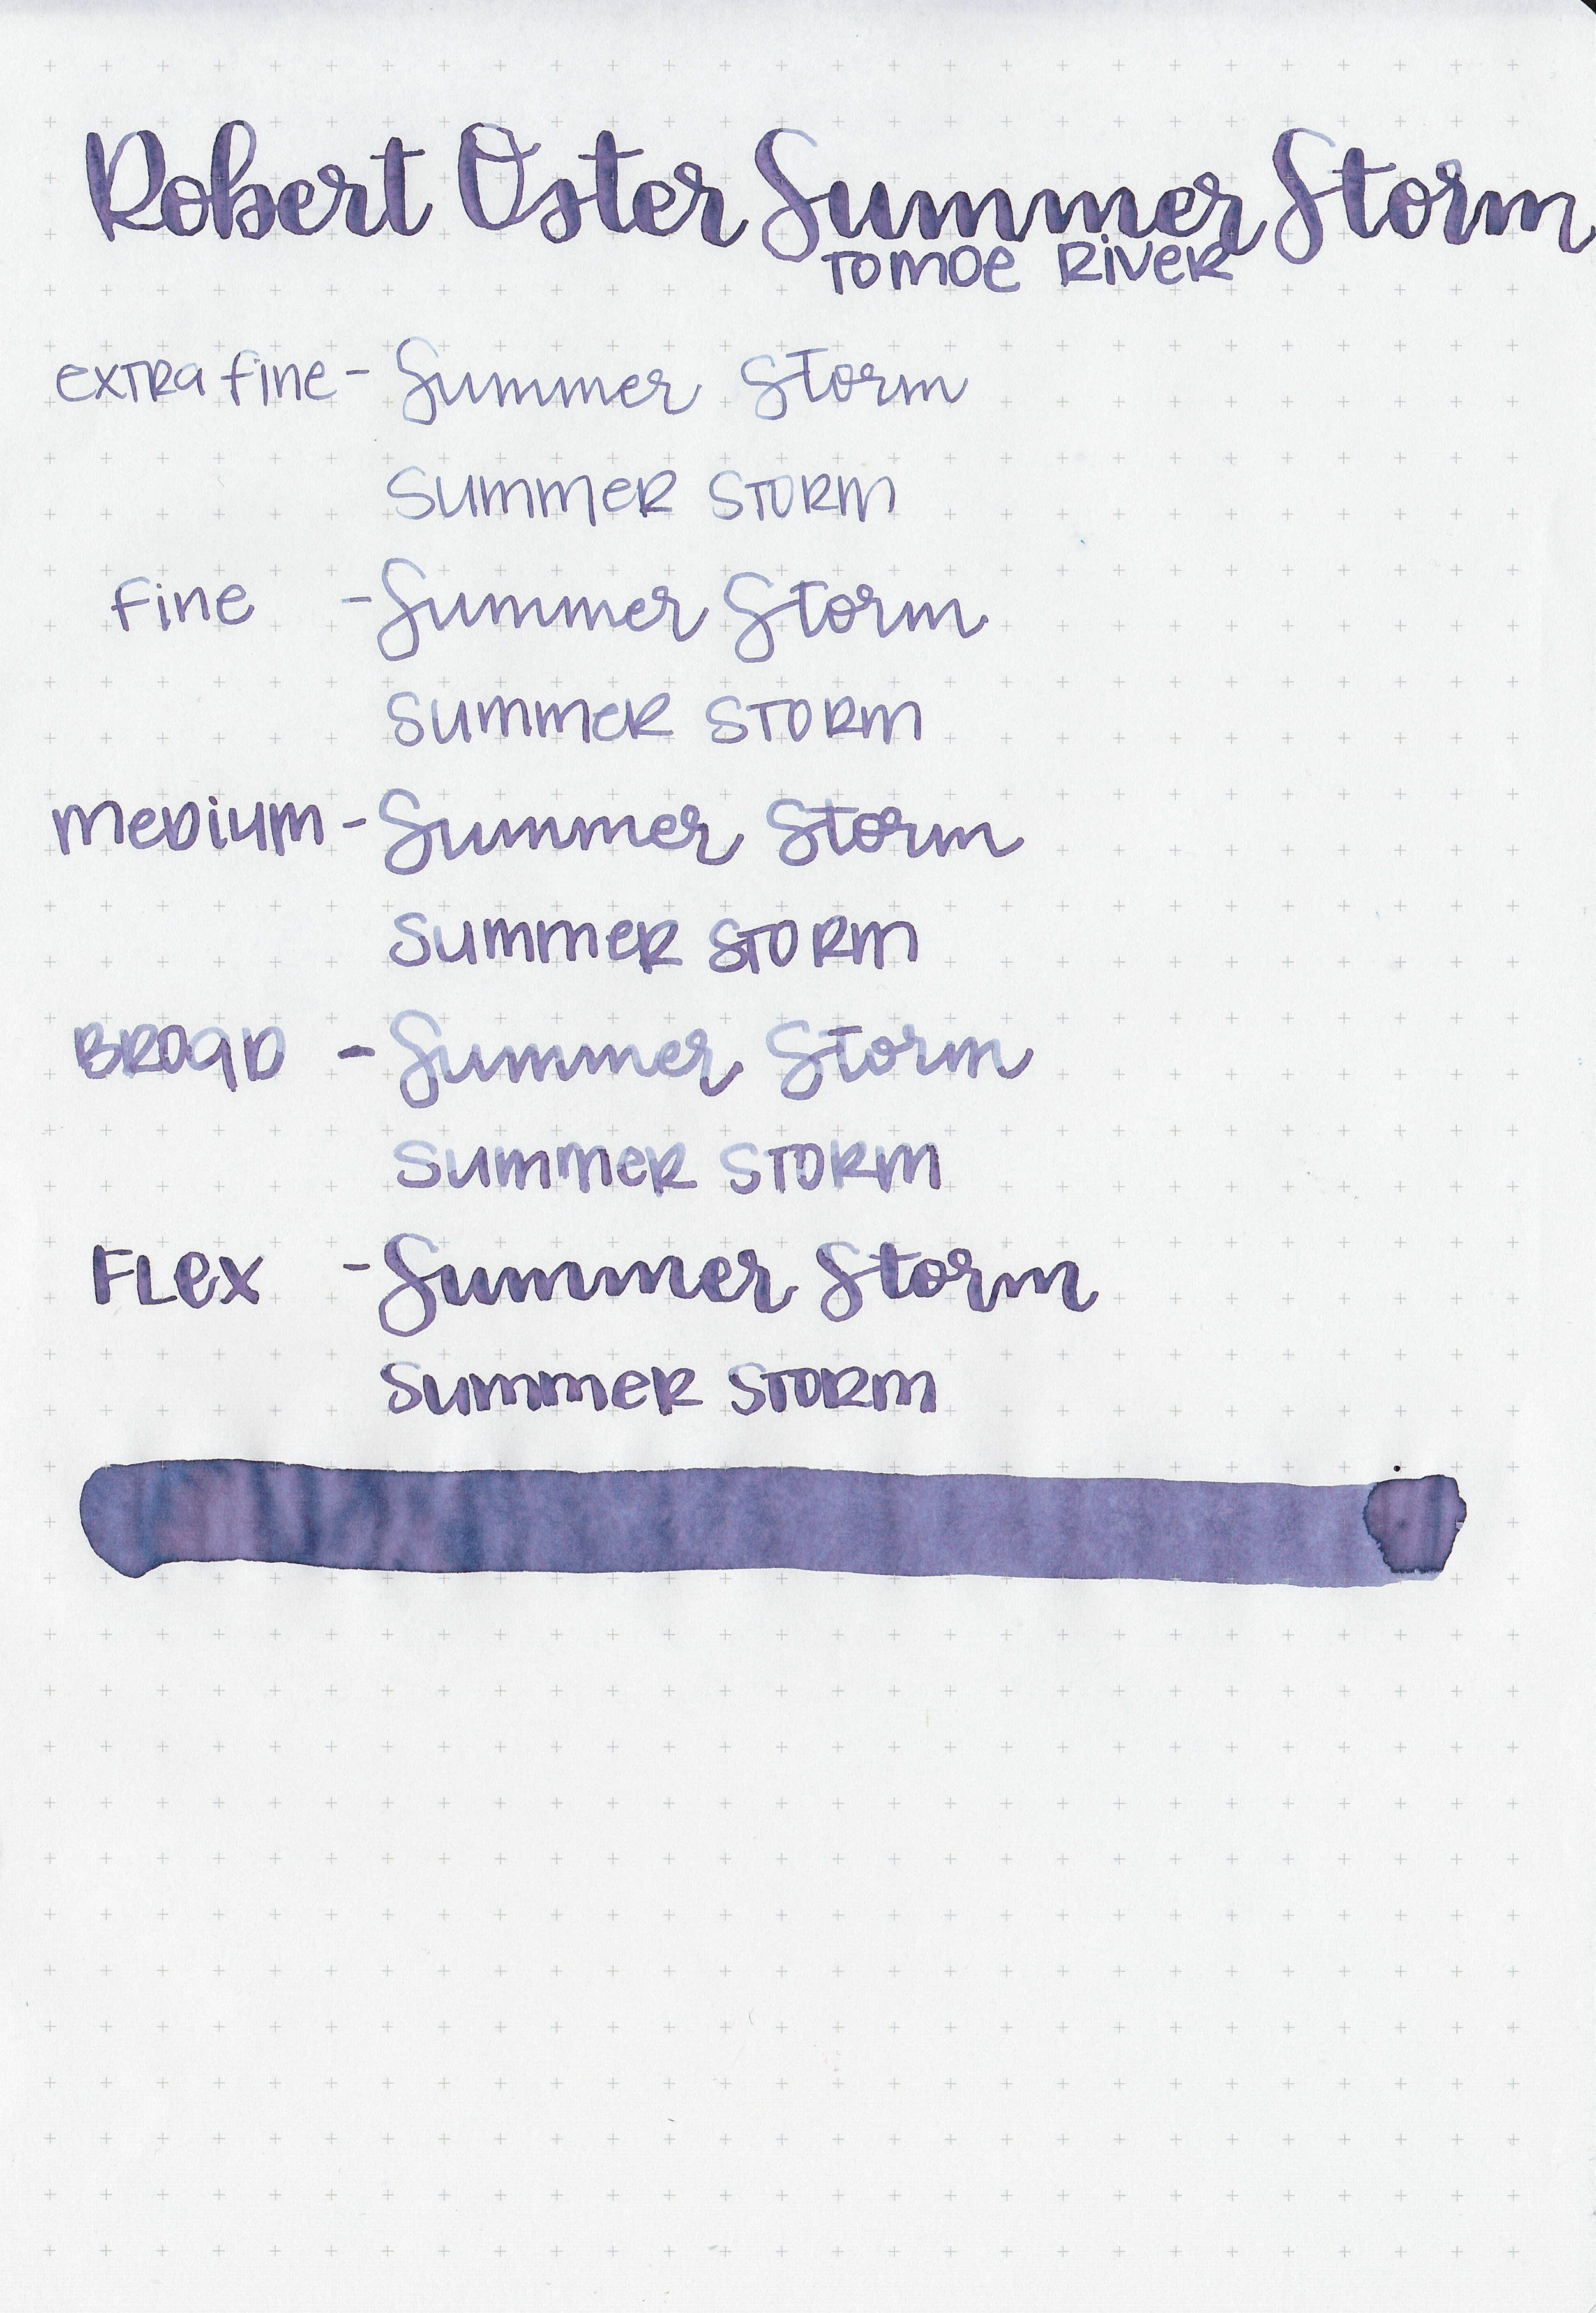 Robert Oster Summer Storm
Tomoe River
extra fine - Summer Storm
Summer Storm
fine - Summer Storm
Summer Storm
medium - Summer Storm
Summer Storm
Broad - Summer Storm
Summer Storm
Flex - Summer Storm
Summer Storm